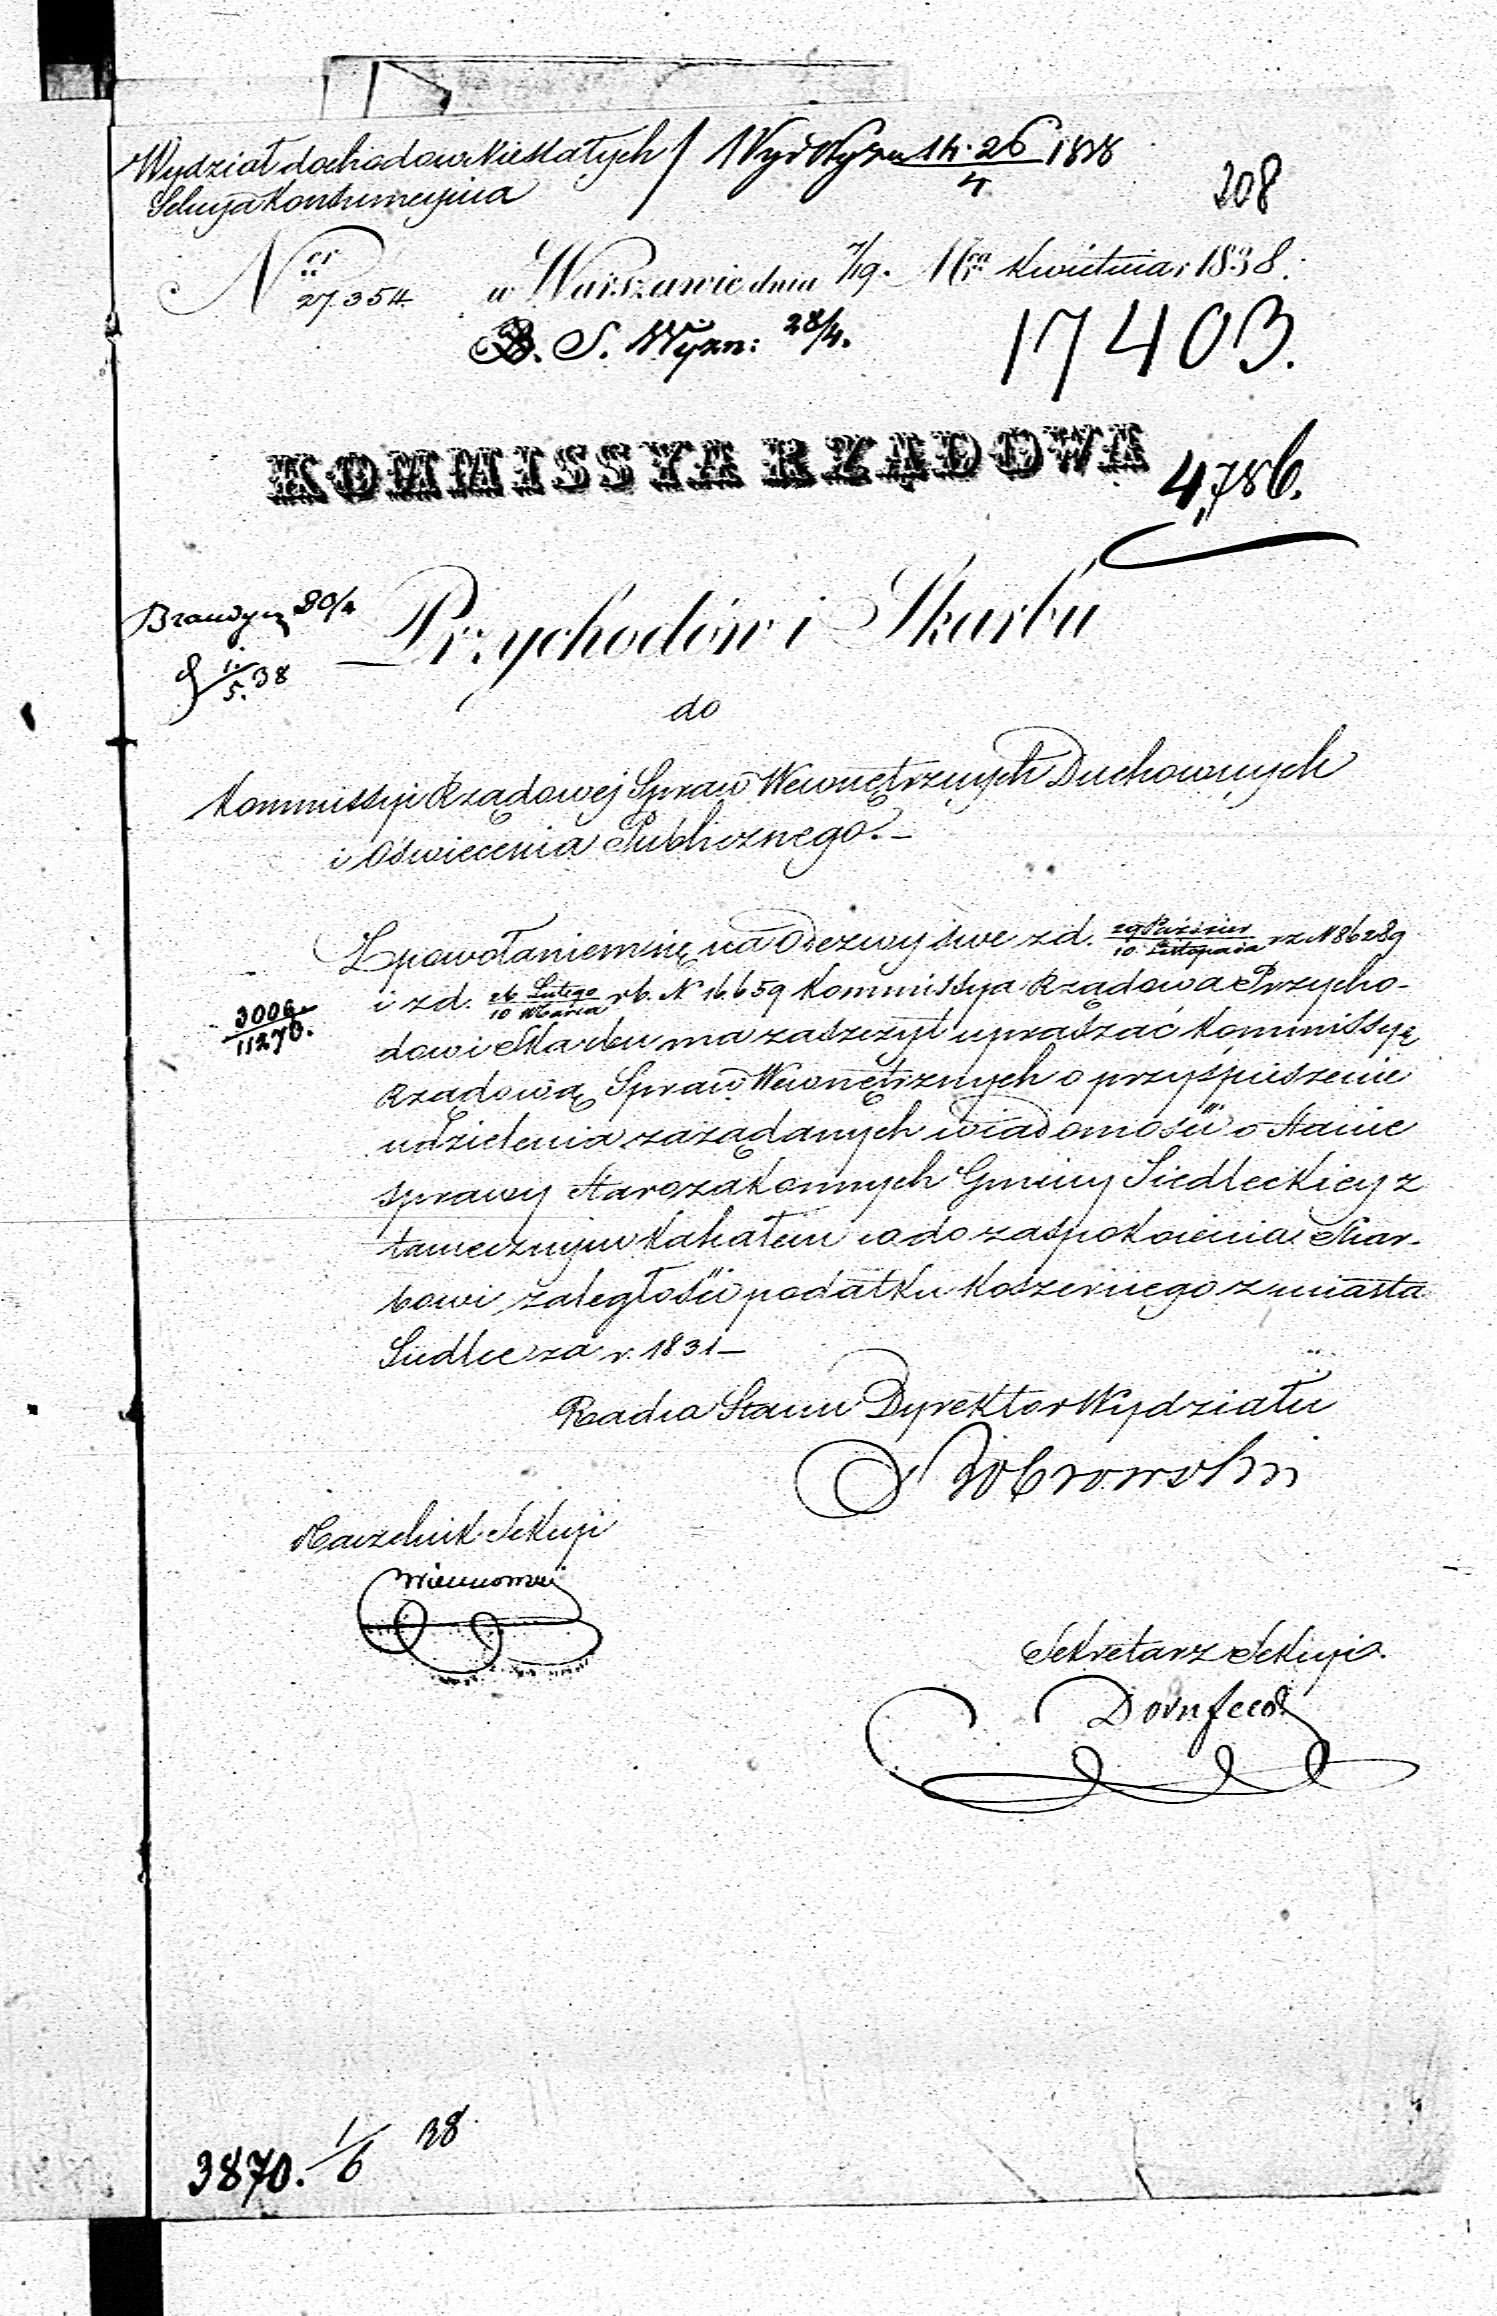 Wydział dochodów Niestałych /
Sekcya Konsumcyjna
208
Nr 27.354 w Warszawie dnia 7/19. Mca Kwietnia r 1838.
S. Wyzn: 28/4.
17403.
KOMMISSYA RZĄDOWA
4,786.
30/4
Przychodów i Skarbu
1./5. 38
do
Kommissyi Rządowej Spraw Wewnętrznych Duchownych
i Oświecenia Publicznego.–
Z powołaniem się na Odezwy swe z d. 29 Paździer / 10 Listopada r z N 86289
i z d. 26 Lutego / 10 Marca r b. N 16.659 Kommissya Rządowa Przycho-
3006. / 11270.
dow i Skarbu ma zaszczyt upraszać Kommissyę
Rządową Spraw Wewnętrznych o przyśpieszenie
udzielenia zażądanych wiadomości o stanie
sprawy Starozakonnych Gminy Siedleckiey z
tamecznym Kahałem co do zaspokoienia Skar-
bowi zaległości podatku Koszernego z miasta
Siedlec za r. 1831–
Radca Stanu Dyrektor Wydziału
Naczelnik Sekcyi
Sekretarz Sekcyi
Dornfeld
3870. 1/6 38